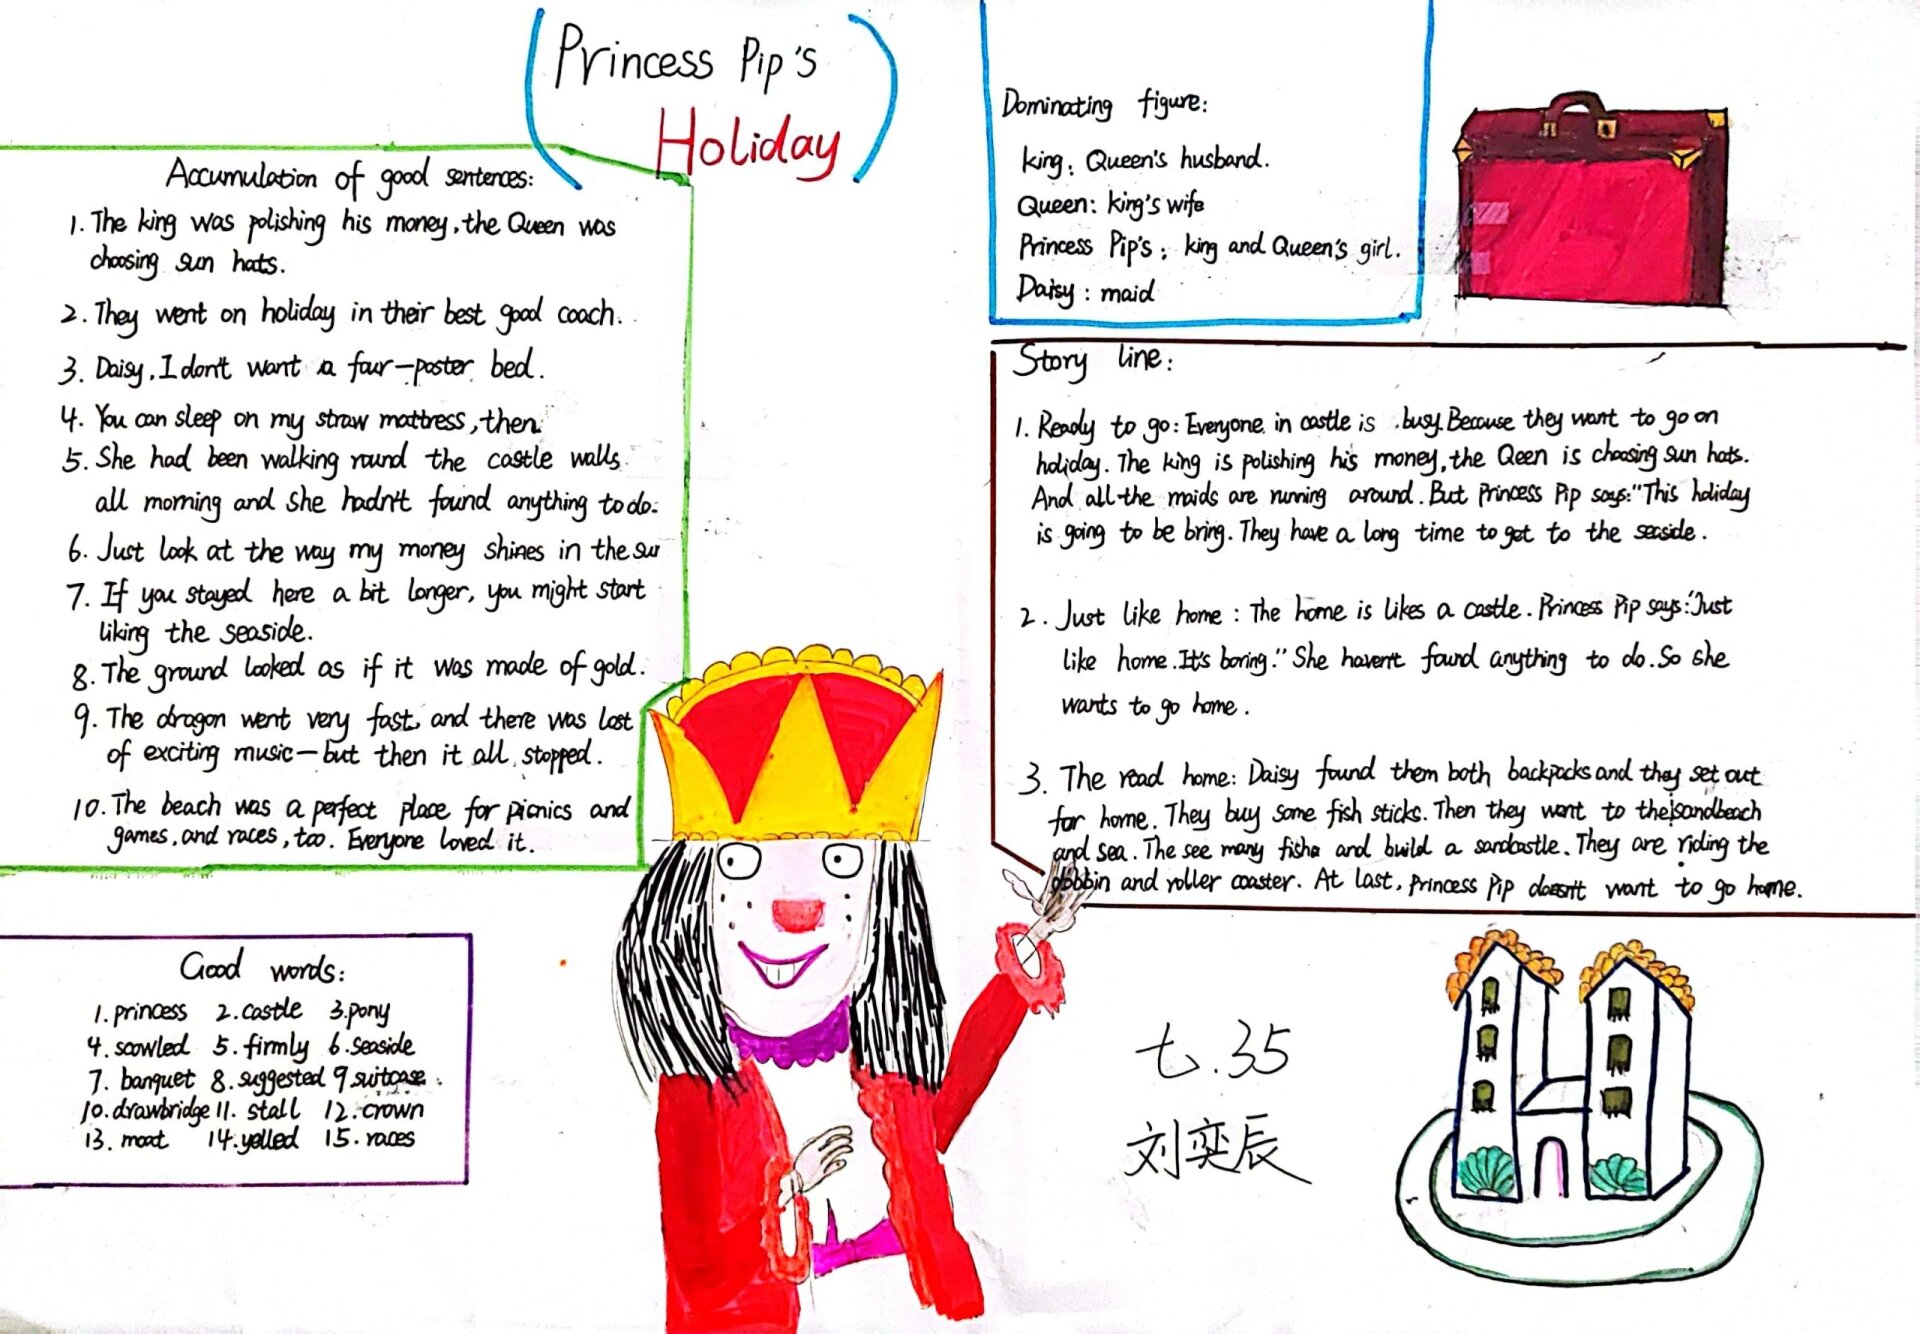 Princess Pip's
Holiday
Accumulation of good sentences:
1. The king was polishing his money, the Queen was
choosing sun hats.
2. They went on holiday in their best good coach.
3. Daisy, I don't want a four-poster bed.
4. You can sleep on my straw mattress, then.
5. She had been walking round the castle walls
all morning and she hadn't found anything to do.
6. Just look at the way my money shines in the sur
7. If you stayed here a bit longer, you might start
liking the seaside.
8. The ground looked as if it was made of gold.
9. The dragon went very fast, and there was lost
of exciting music—but then it all stopped.
10. The beach was a perfect place for picnics and
games, and races, too. Everyone loved it.
Good words:
1. princess 2. castle 3. pony
4. scowled 5. firmly 6. seaside
7. banquet 8. suggested 9. suitcase
10. drawbridge 11. stall 12. crown
13. moat 14. yelled 15. races
Dominating figure:
king: Queen's husband.
Queen: king's wife
Princess Pip's: king and Queen's girl.
Daisy: maid
Story line:
1. Ready to go: Everyone in castle is busy. Because they want to go on
holiday. The king is polishing his money, the Qeen is choosing sun hats.
And all the maids are running around. But Princess Pip says: "This holiday
is going to be bring. They have a long time to get to the seaside.
2. Just like home: The home is likes a castle. Princess Pip says: "Just
like home. It's boring." She haven't found anything to do. So she
wants to go home.
3. The road home: Daisy found them both backpacks and they set out
for home. They buy some fish sticks. Then they want to the sandbeach
and sea. The see many fishe and build a sandcastle. They are riding the
and roller coaster. At last, Princess Pip doesn't want to go home.
七.35
刘奕辰